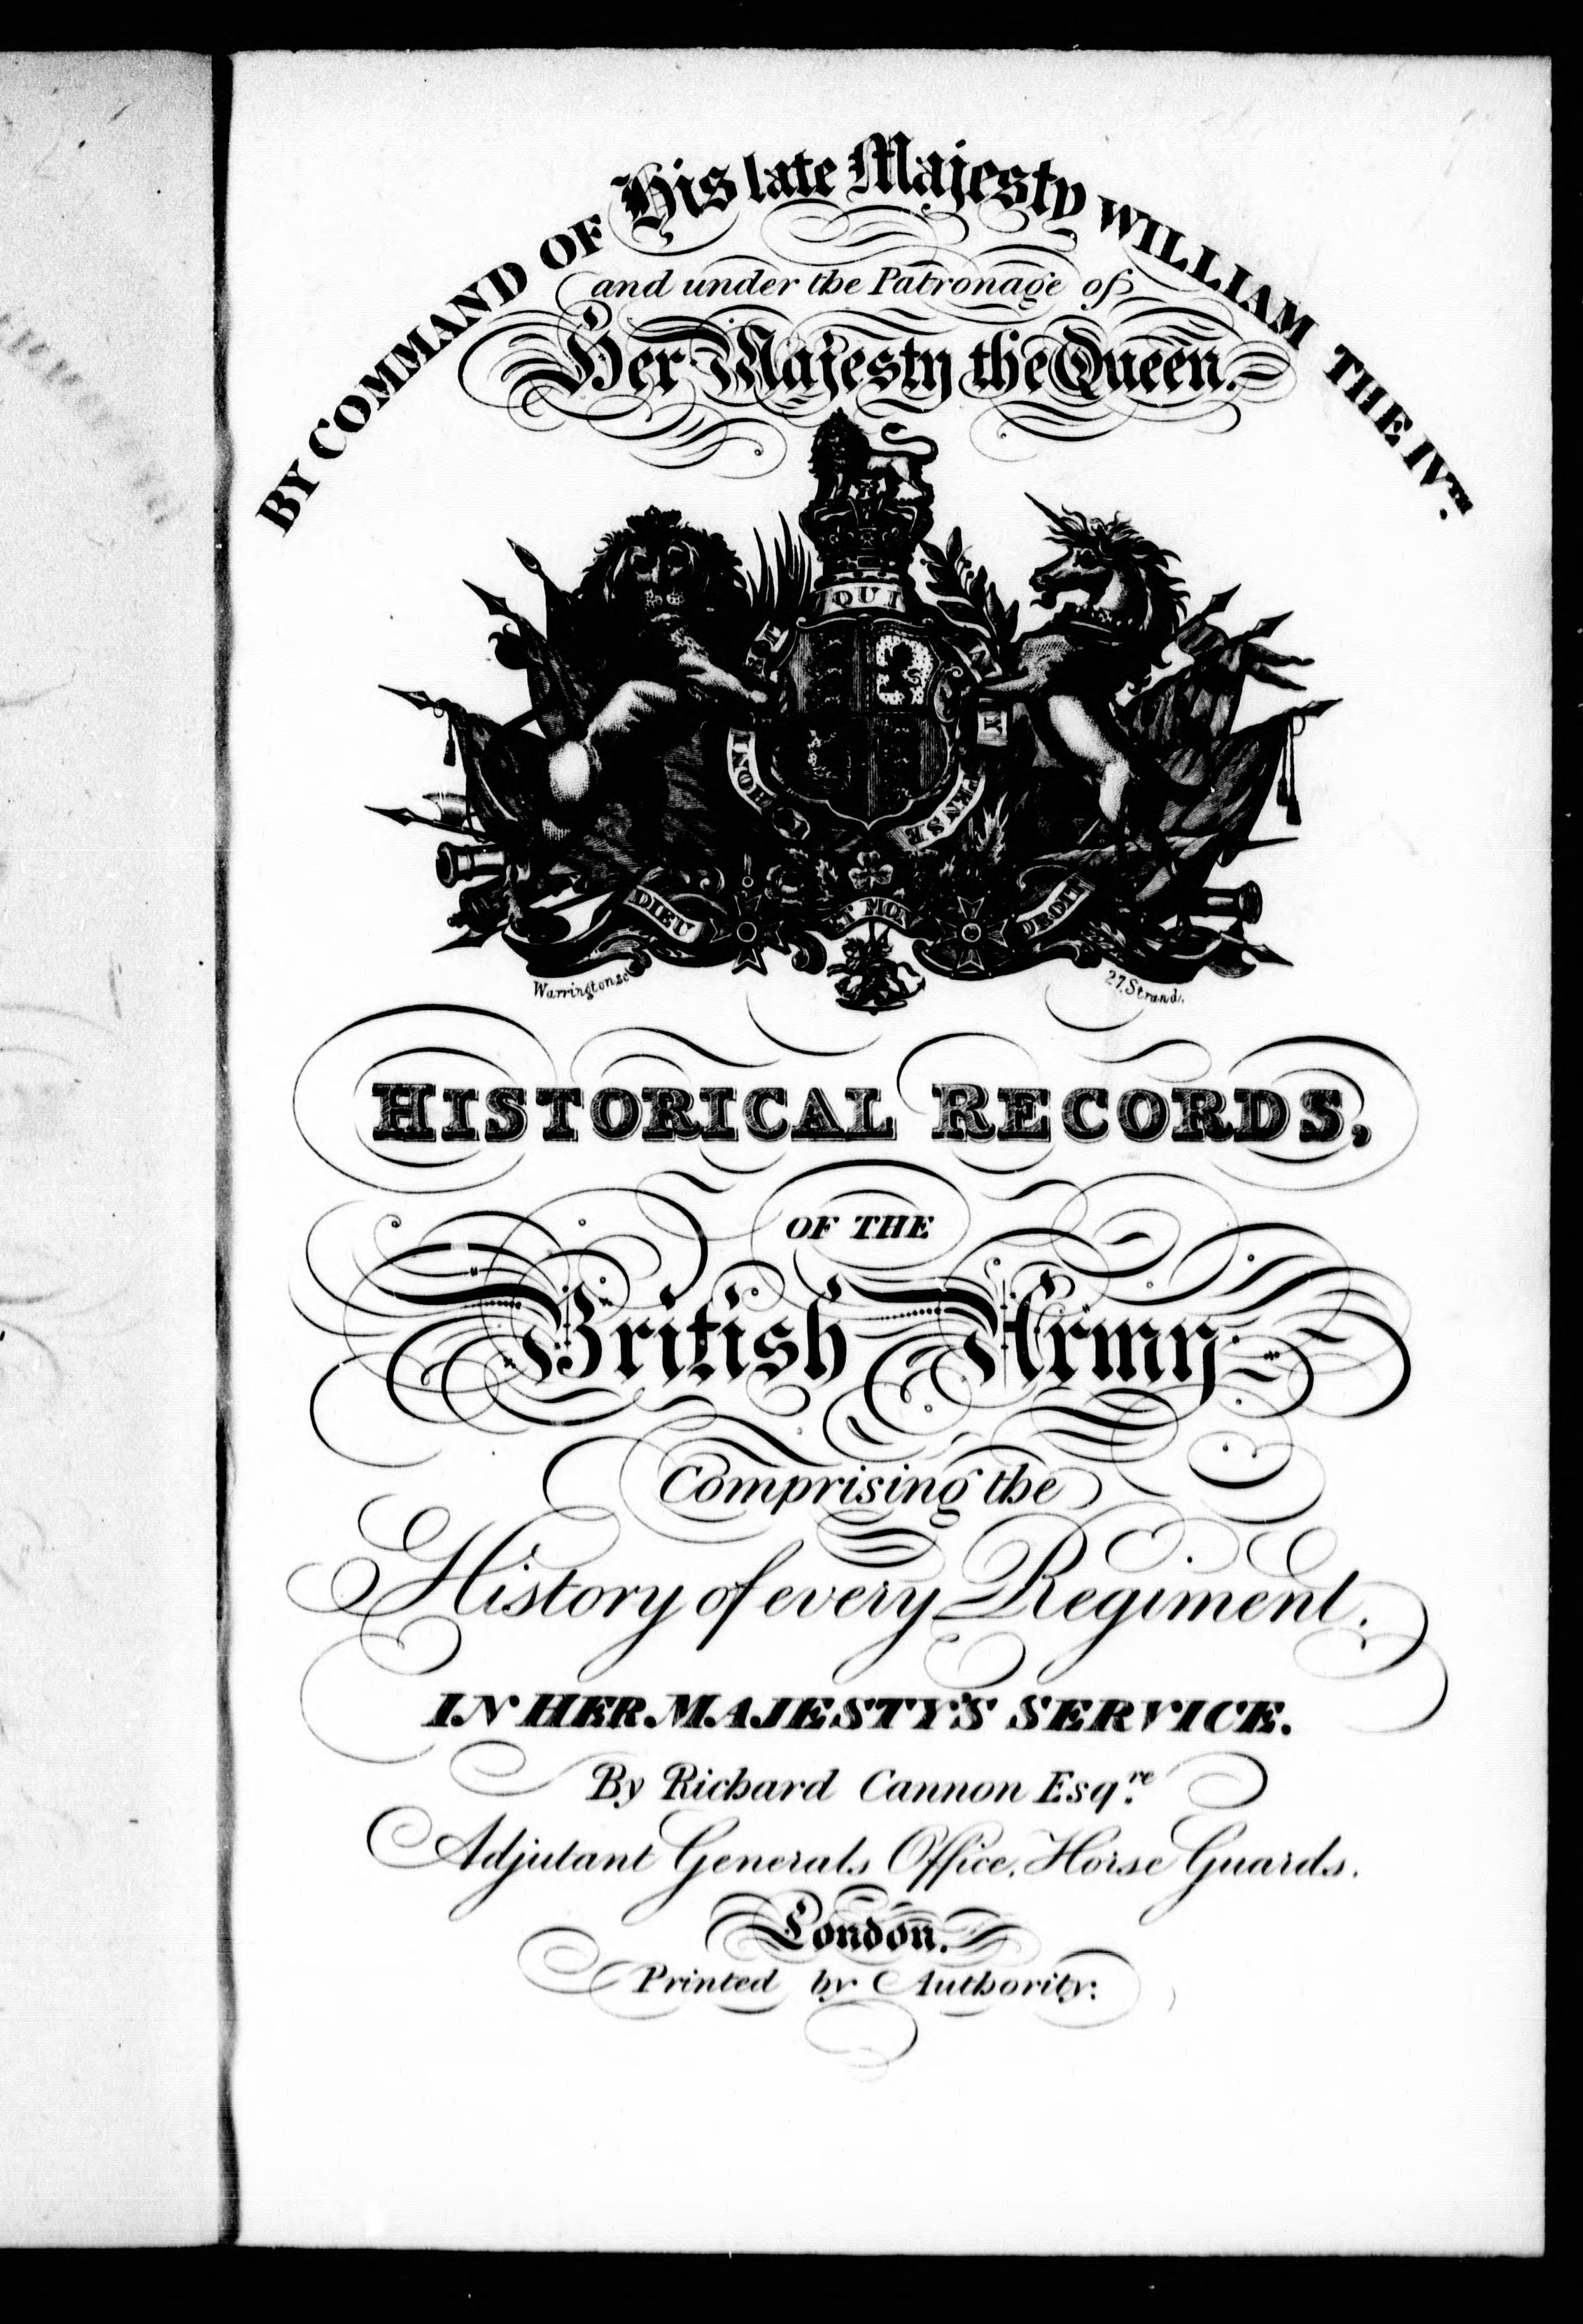 BY COMMAND OF His late Majesty WILLIAM THE IV.TH
and under the Patronage of
Her Majesty the Queen.
QUI
HONI
PENSE
DIEU ET MON DROIT
Warrington sc
27, Strand.
HISTORICAL RECORDS,
OF THE
British Army
Comprising the
History of every Regiment.
IN HER MAJESTY'S SERVICE.
By Richard Cannon Esq.re
Adjutant Generals Office, Horse Guards.
London.
Printed by Authority: